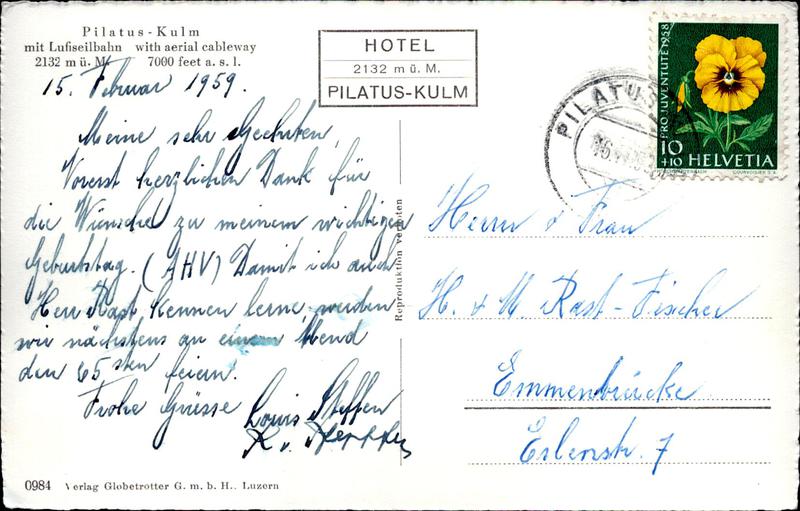 Pilatus-Kulm
mit Luftseilbahn with aerial cableway
2132 m ü. M. 7000 feet a. s. l.
HOTEL
2132 m ü. M.
PILATUS-KULM
PILATUS
PRO JUVENTUTE 1958
10
+10 HELVETIA
COURVOISIER S.A.
15. Februar 1959.
Meine sehr Geehrten,
Vorerst herzlichen Dank für
die Wünsche zu meinem wichtigen
Geburtstag. (AHV) Damit ich auch
Herr Rast kennen lerne, werden
wir nächstens an einem Abend
den 65sten feiern.
Frohe Grüsse Louis Steffen
Reproduktion verboten
Herrn & Frau
H. & M. Rast-Fischer
Emmenbrücke
Erlenstr. 7
0984 Verlag Globetrotter G. m. b. H., Luzern